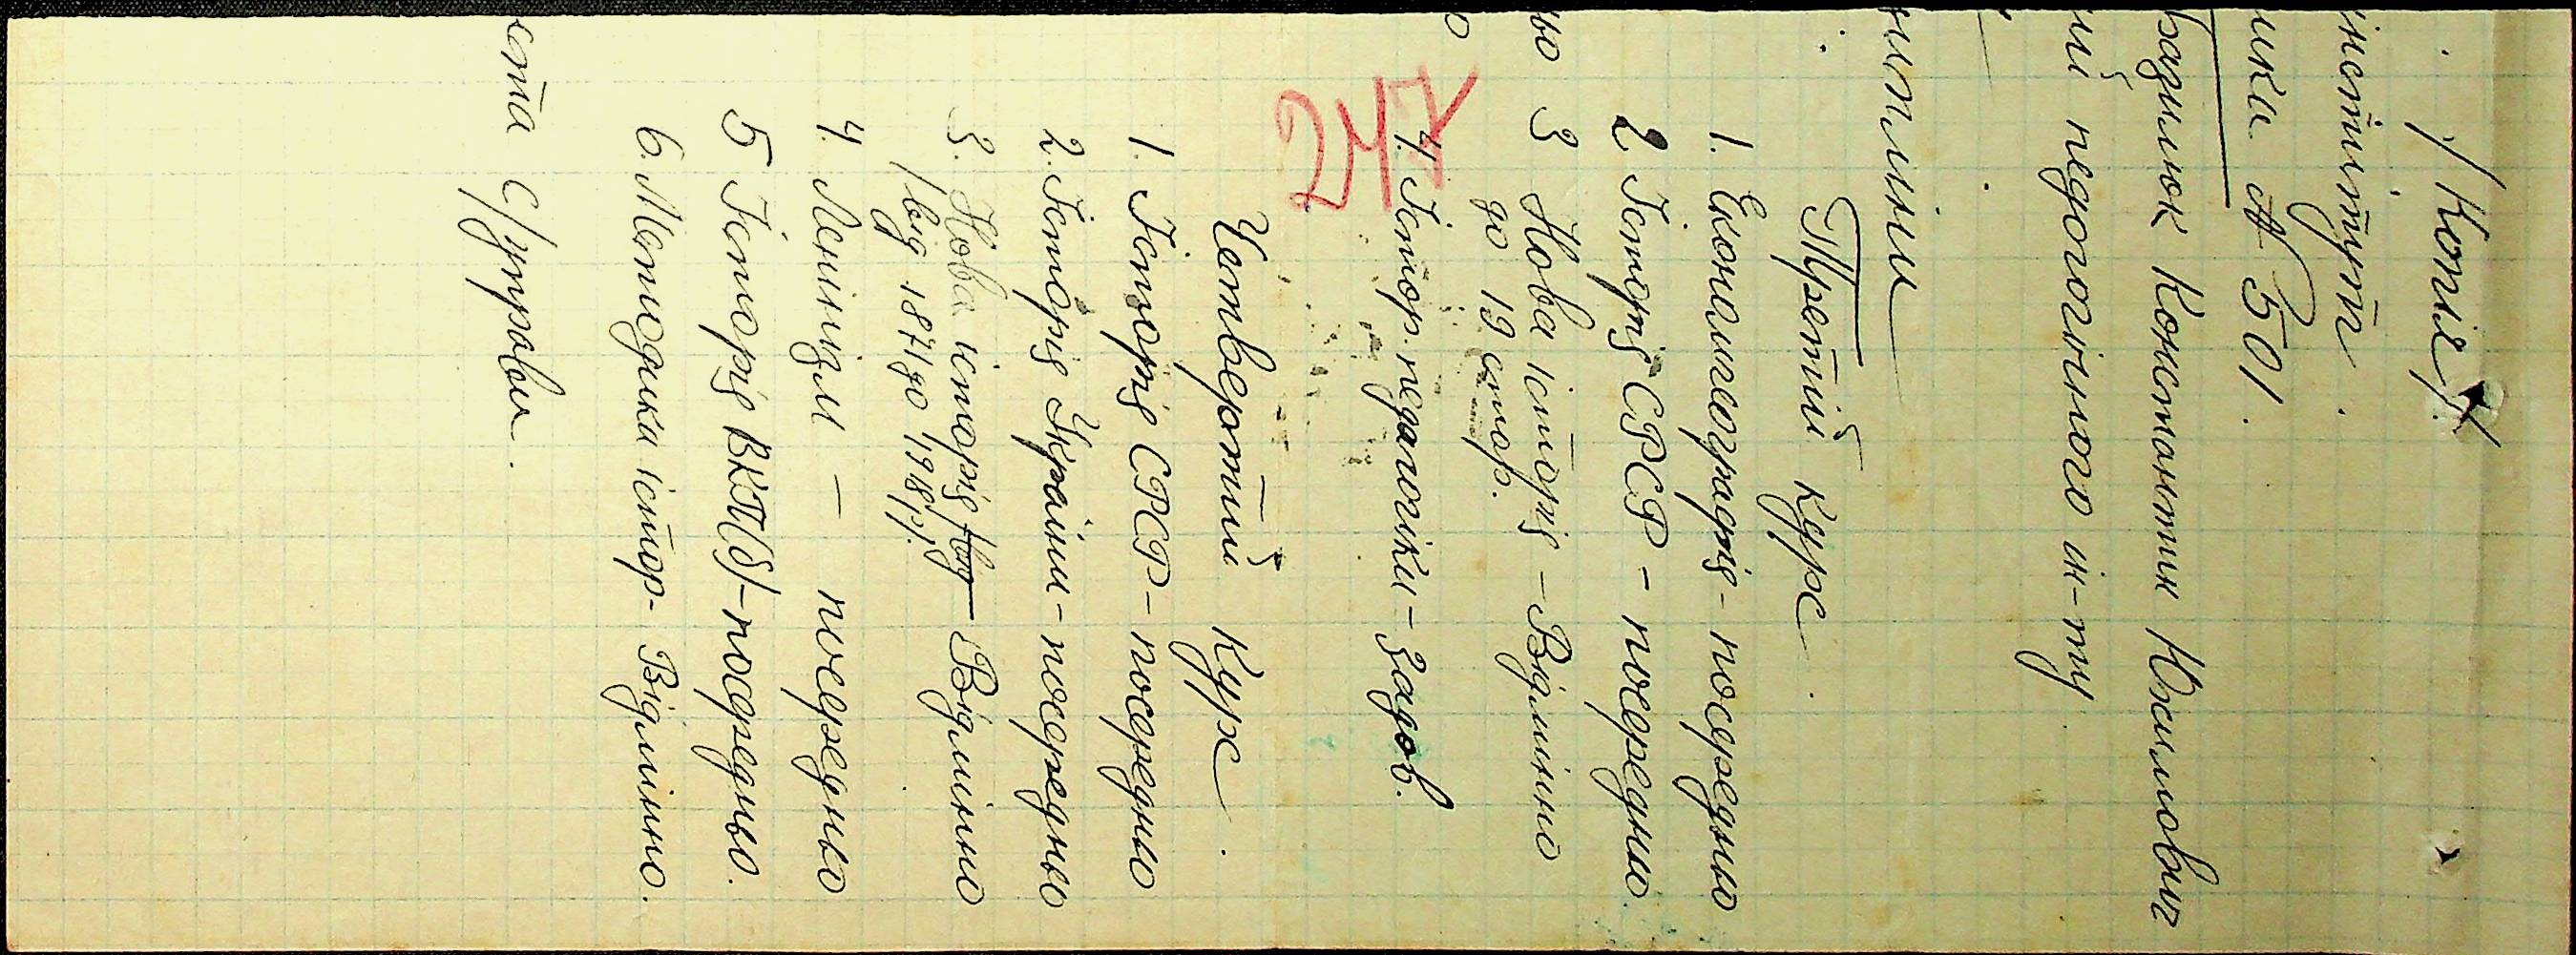 . / Копія /.
інститут.
ника № 501.
Вадилюк Константин Юхимович
ний педогогічного ін-ту.
ципліни
Третій курс.
1. Економгеографія - посередньо
2 Історія СРСР - посередньо.
ньо 3 Нова історія - Відмінно
до 19 стор.
о 4. Істор. педагогіки - Задов.
247
Четвертий курс.
1. Історія СРСР - посередньо
2. Історія України - посередньо
3. Нова історія - Відмінно
/від 1871 до 1918/р.
4. Ленінізм - посередньо
5 Історія ВКП(б) - посередньо.
6. Методика істор - Відмінно.
ста С/управи.